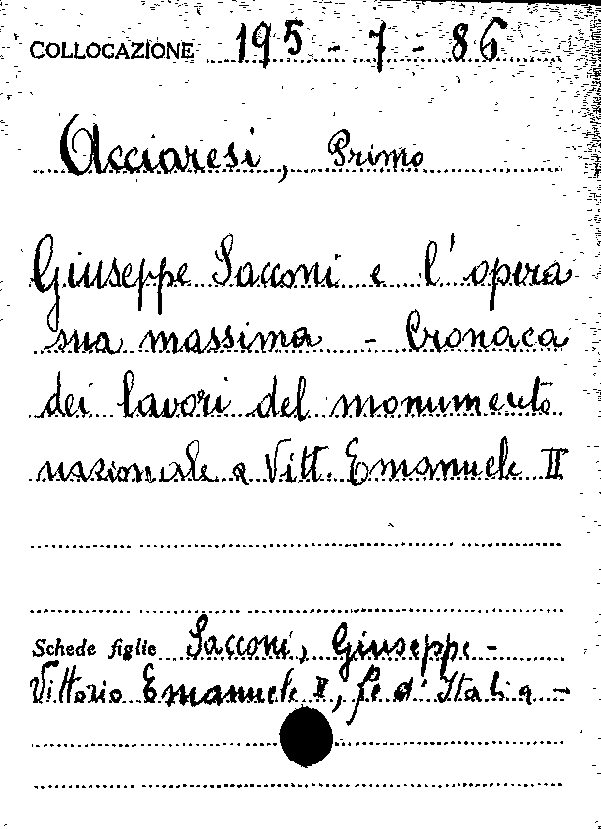 COLLOCAZIONE 195 - 7 - 86
Acciaresi, Primo
Giuseppe Sacconi e l'opera
sua massima - Cronaca
dei lavori del monumento
nazionale a Vitt. Emanuele II
Schede figlie Sacconi, Giuseppe -
Vittorio Emanuele II, re d'Italia -